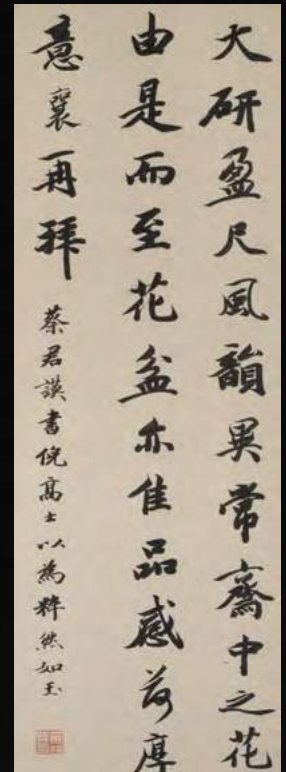 大研盈尺風韻異常齋中之花
由是而至花盆亦佳品感荷厚
意襄再拜
蔡君謨書倪高士以為粹然如玉